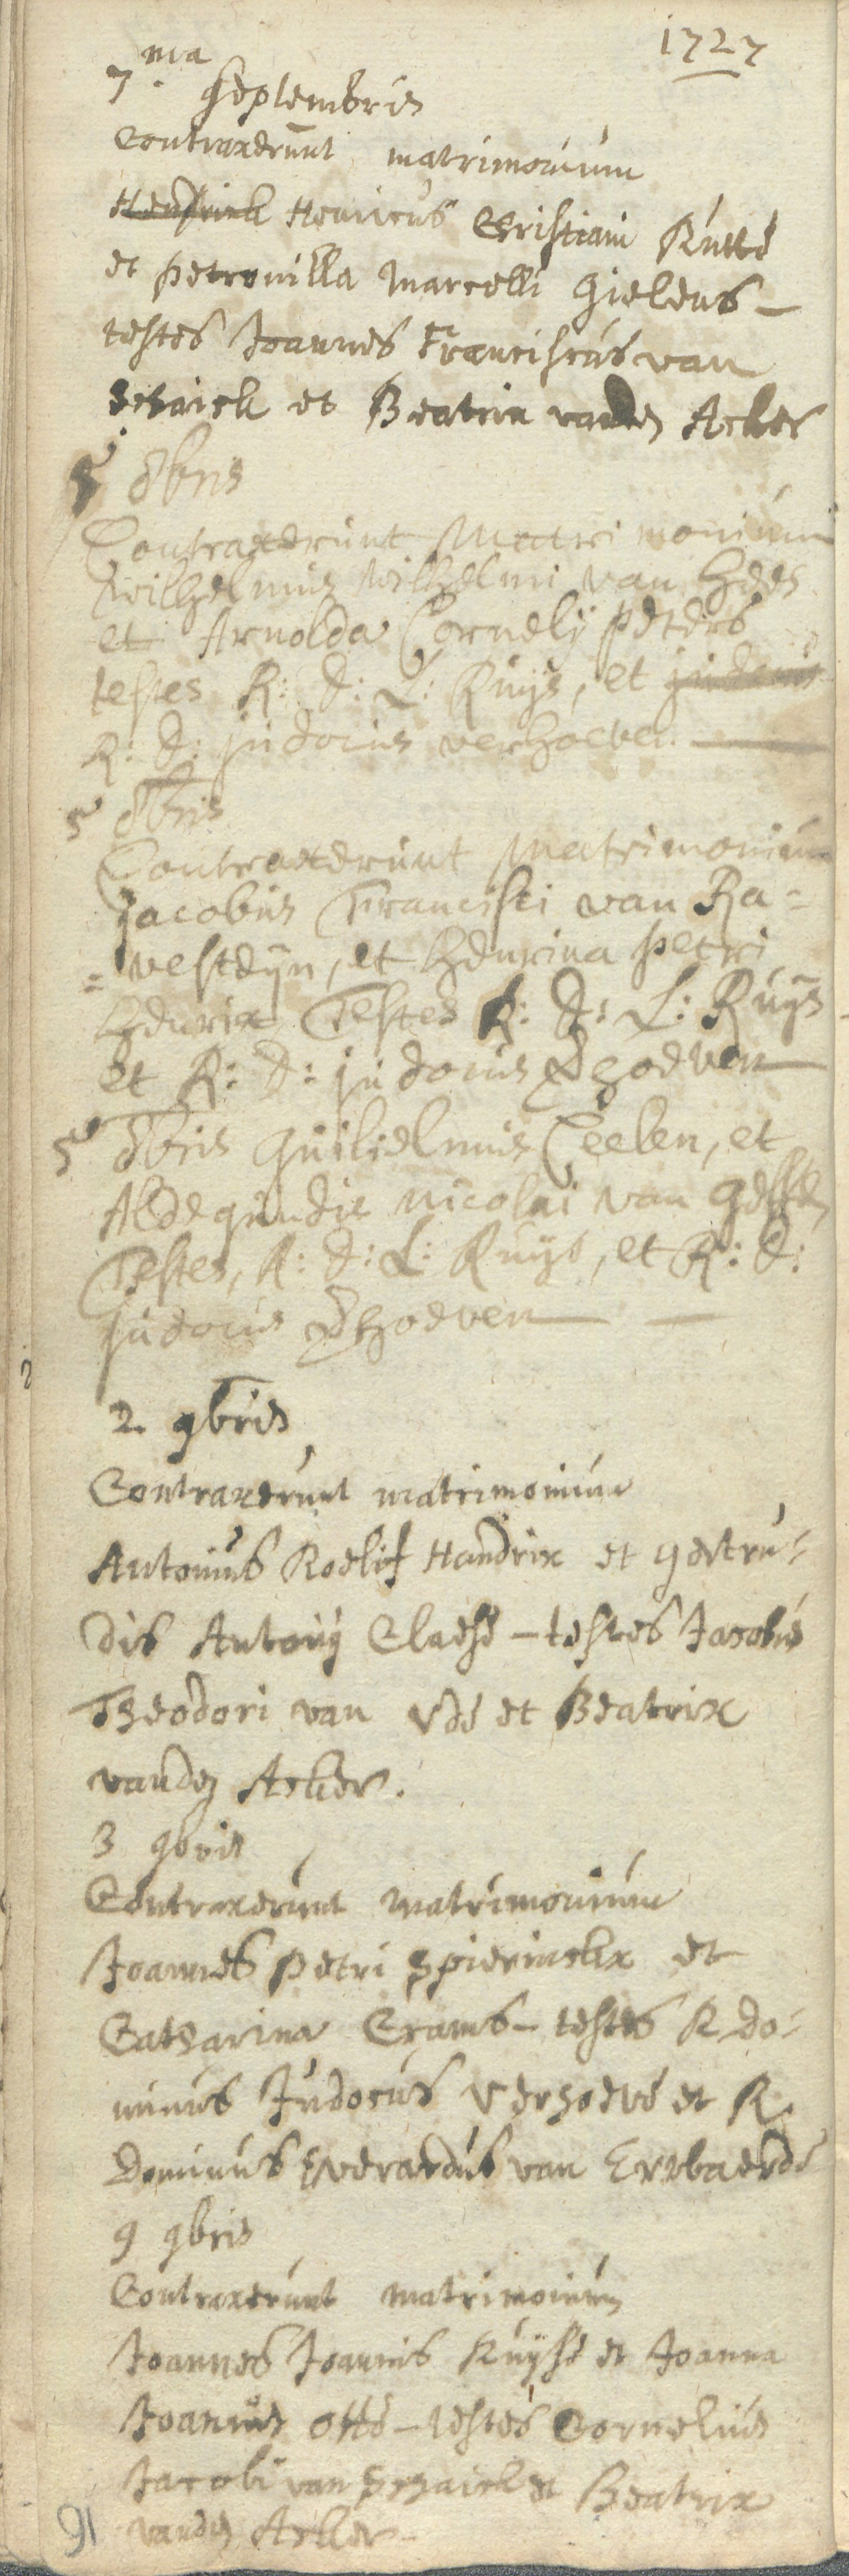 1727
7ma Septembris
Contraxerunt matrimonium
Hendrick Henricus Christiani Rutté
et Petronilla Marcelli Gielens -
testes Joannes Franciscus van
Schaick et Beatrix vanden Acker
5 8bris
Contraxerunt Matrimonium
Wilhelmus Wilhelmi van Hees
et Arnolda Cornelij Peters
testes R: D: L: Ruijs, et judocus
R: D: judocus verhoeven. -
5 8bris
Contraxerunt Matrimonium
Jacobus Francisci van Ra=
=vesteijn, et Henrica Petri
Henrix Testes R: D: L: Ruijs
et R: D: judocus Vhoeven
5 8bris Guilielmus Ceelen, et
Aldegundis Nicolai van Geffen
Testes, R: D: L: Ruijs, et R: D:
judocus Vhoeven -
2. 9bris
Contraxerunt matrimonium
Antonius Roelif Handrix et Gertru=
dis Antonij Claesé - testes Jacobus
Theodori van Udé et Beatrix
vanden Acker.
3 9bris
Contraxerunt matrimonium
Joannes Petri Spierinckx et
Catharina Exams - testes R do=
minus Judocus Verhoevé et R.
Dominus Everardus van
9 9bris
Contraxerunt matrimonium
Joannes Joannis Kuijsé et Joanna
Joannis Otté - testes Cornelius
Jacobi van Schaick et Beatrix
vanden Acker -
91